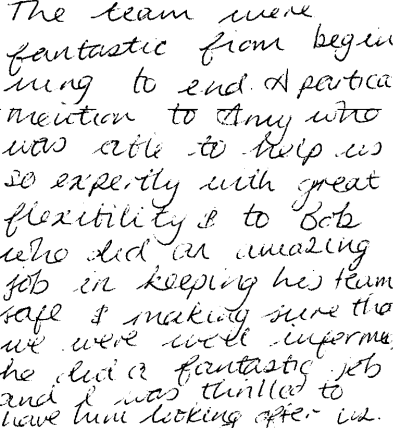 The team were
fantastic from begin
ning to end. A partica
mention to Amy who
was able to help us
so expertly with great
flexibility & to Bob
who did an amazing
job in keeping his team
safe & making sure tha
we were well informe
he did a fantastic job
and I was thrilled to
have him looking after us.